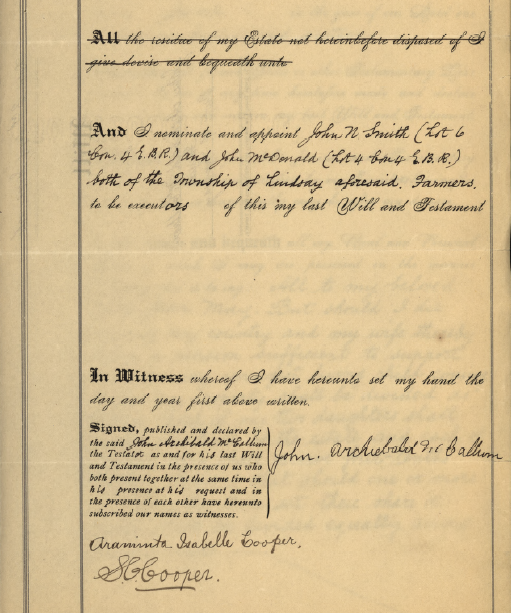 All the residue of my Estate not hereinbefore disposed of I
give devise and bequeath unto
And I nominate and appoint John N Smith (Lot 6
Con. 4 E.B.R.) and John McDonald (Lot 4 Con 4 E.B.R.)
both of the Township of Lindsay aforesaid. Farmers.
to be executors of this my last Will and Testament
In Witness whereof I have hereunto set my hand the
day and year first above written.
Signed, published and declared by
the said John Archibald McCallum
the Testator as and for his last Will
and Testament in the presence of us who
both present together at the same time in
his presence at his request and in
the presence of each other have hereunto
subscribed our names as witnesses.
John. Archiebald Mc Callum
Araminta Isabelle Cooper.
S.C. Cooper.